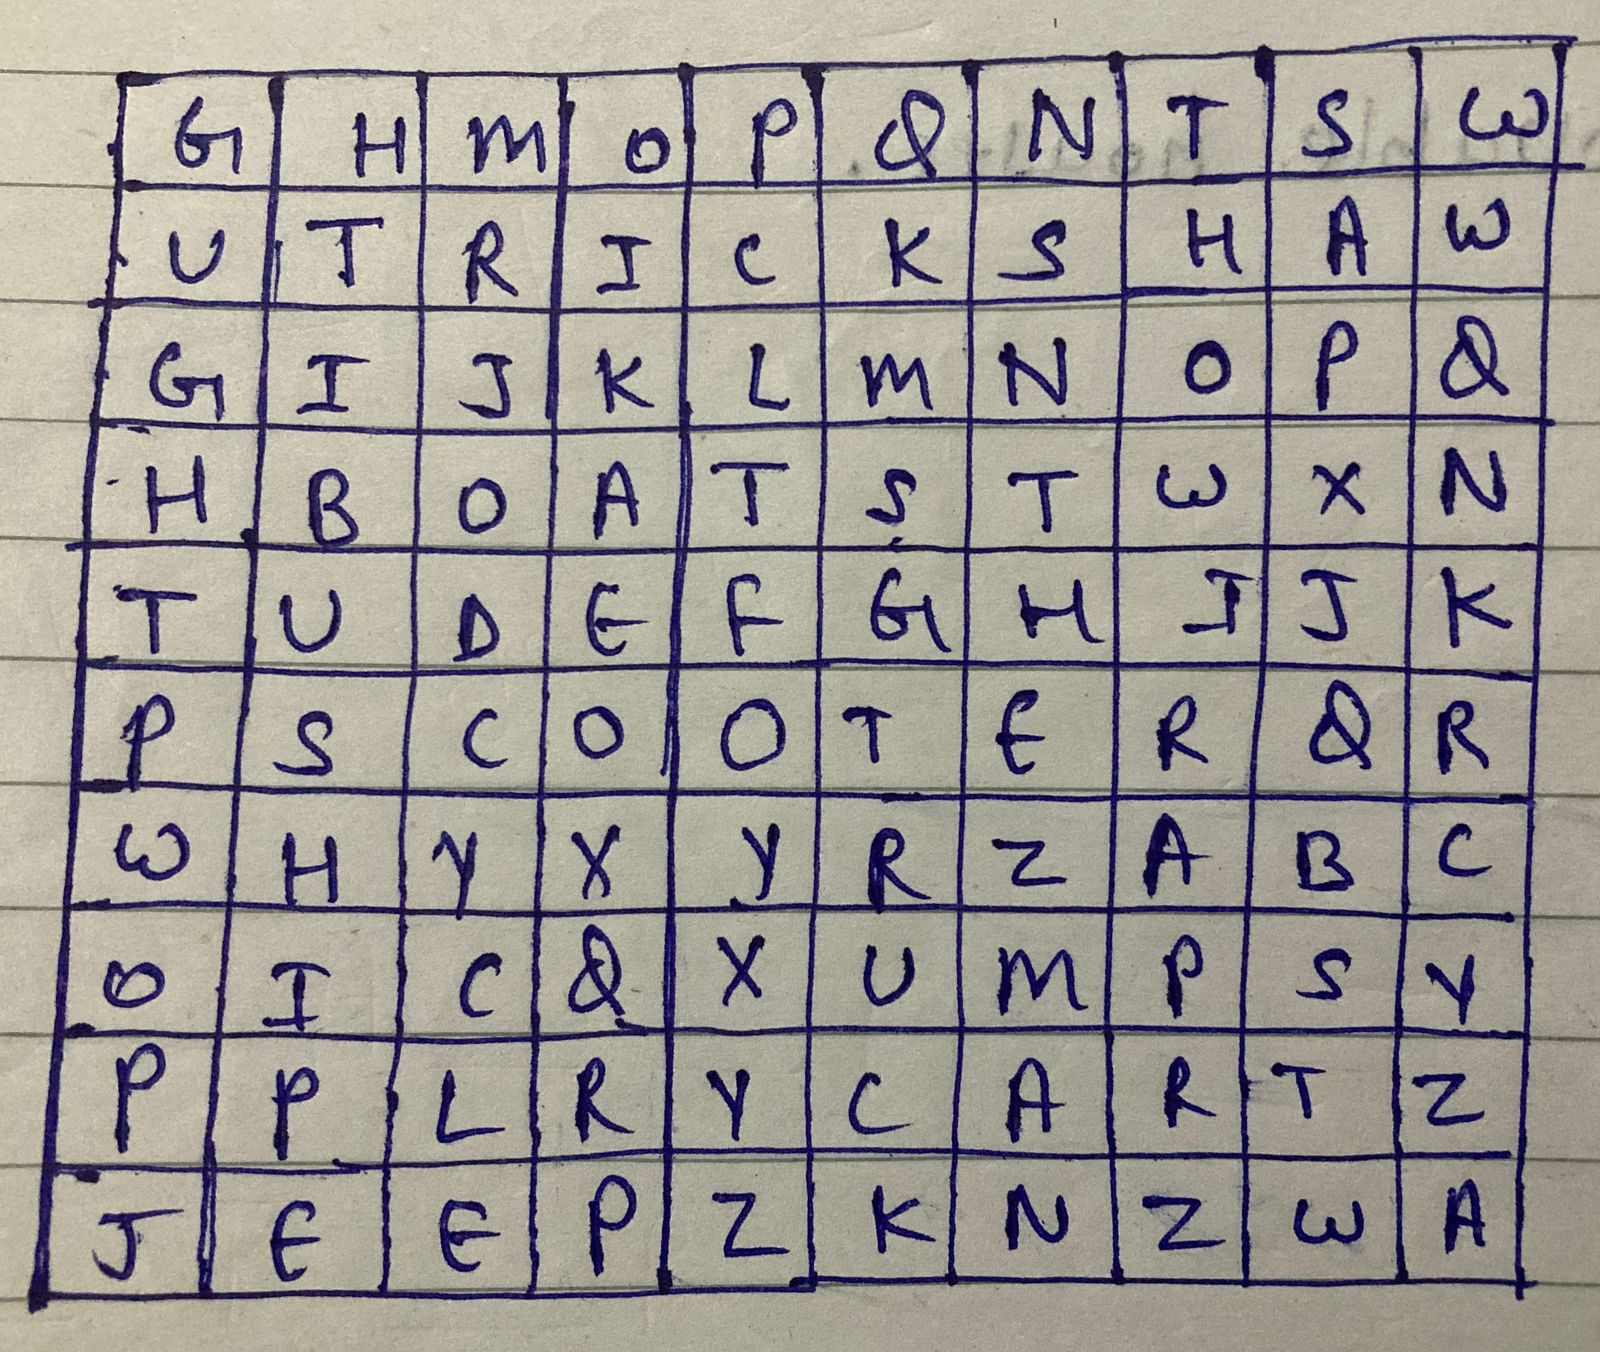 G H M O P Q N T S W
U T R I C K S H A W
G I J K L M N O P Q
H B O A T S T W X N
T U D E F G H I J K
P S C O O T E R Q R
W H Y X Y R Z A B C
O I C Q X U M P S Y
P P L R Y C A R T Z
J E E P Z K N Z W A